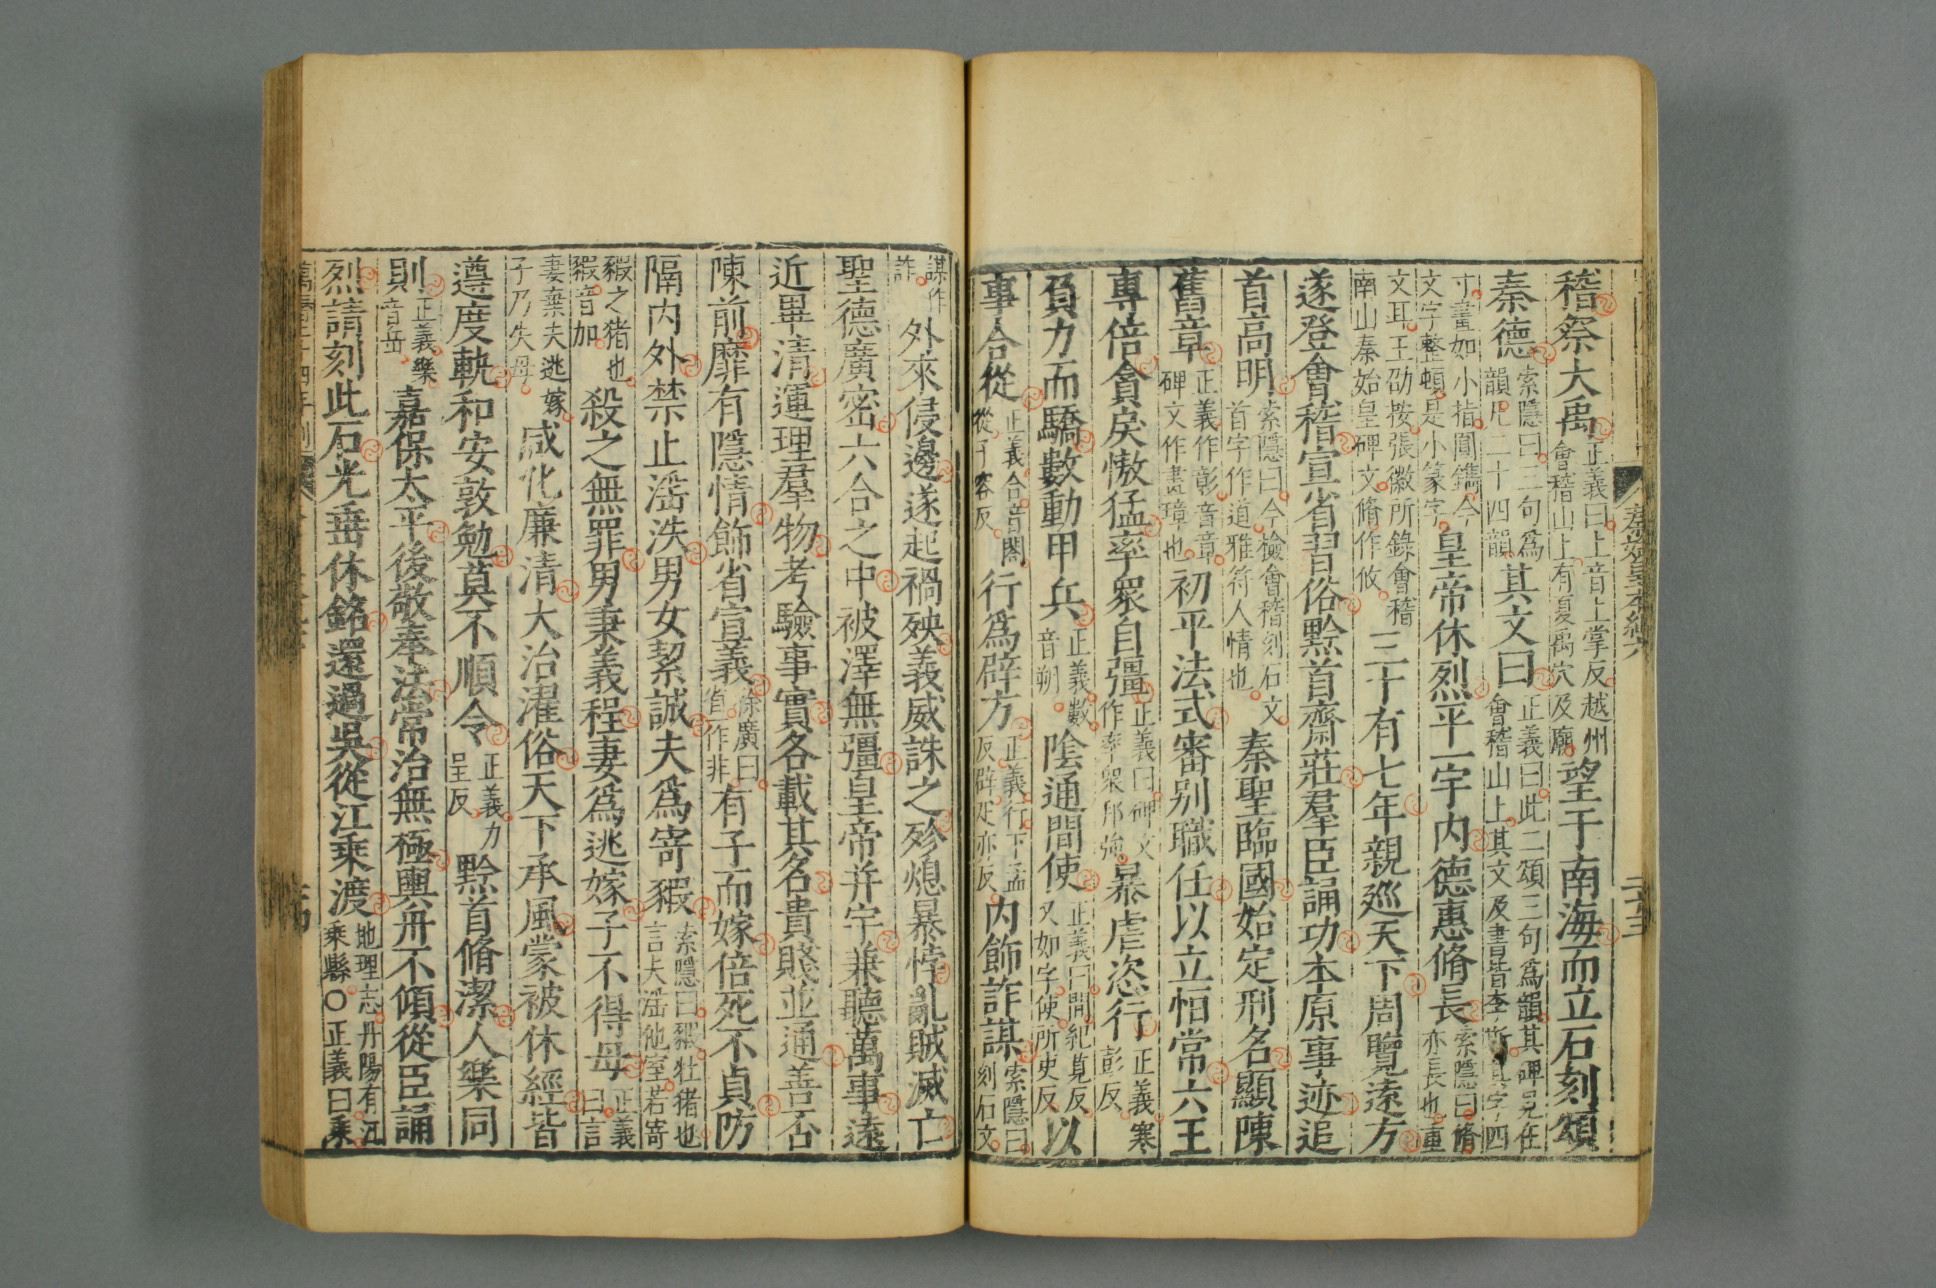 稽祭大禹正義曰上音上掌反越州會稽山上有夏禹穴及廟望于南海而立石刻頌
秦德索隱曰三句為韻凡二十四韻其文曰正義曰此二頌三句為韻其碑見在會稽山上其文及書皆李斯其字四
寸畫如小指圓鐫今文字整頓是小篆字皇帝休烈平一宇內德惠脩長索隱曰脩亦長也重
文耳王劭按張徽所錄會稽南山秦始皇碑文脩作攸三十有七年親巡天下周覽遠方
遂登會稽宣省習俗黔首齋莊羣臣誦功本原事迹追
首高明索隱曰今檢會稽刻石文首字作道雅符人情也秦聖臨國始定刑名顯陳
舊章正義作彰音章碑文作畫璋也初平法式審別職任以立恒常六王
專倍貪戾慠猛率衆自彊正義曰碑文作率衆邦強暴虐恣行正義寒彭反
負力而驕數動甲兵正義數音朔陰通間使正義曰間紀莧反又如字使所吏反以
事合從正義合音閤從子容反行為辟方正義行下孟反辟疋亦反內飾詐謀索隱曰刻石文
謀作詐外來侵邊遂起禍殃義威誅之殄熄暴悖亂賊滅亡
聖德廣密六合之中被澤無彊皇帝并宇兼聽萬事遠
近畢清運理羣物考驗事實各載其名貴賤並通善否
陳前靡有隱情飾省宣義徐廣曰省一作非有子而嫁倍死不貞防
隔內外禁止淫泆男女絜誠夫為寄豭索隱曰豭牡猪也言夫淫他室若寄
豭之猪也豭音加殺之無罪男秉義程妻為逃嫁子不得母正義曰言
妻棄夫逃嫁子乃失母咸化廉清大治濯俗天下承風蒙被休經皆
遵度軌和安敦勉莫不順令正義力呈反黔首脩潔人樂同
則正義樂音岳嘉保太平後敬奉法常治無極輿舟不傾從臣誦
烈請刻此石光垂休銘還過吳從江乘渡地理志丹陽有江乘縣○正義曰乘